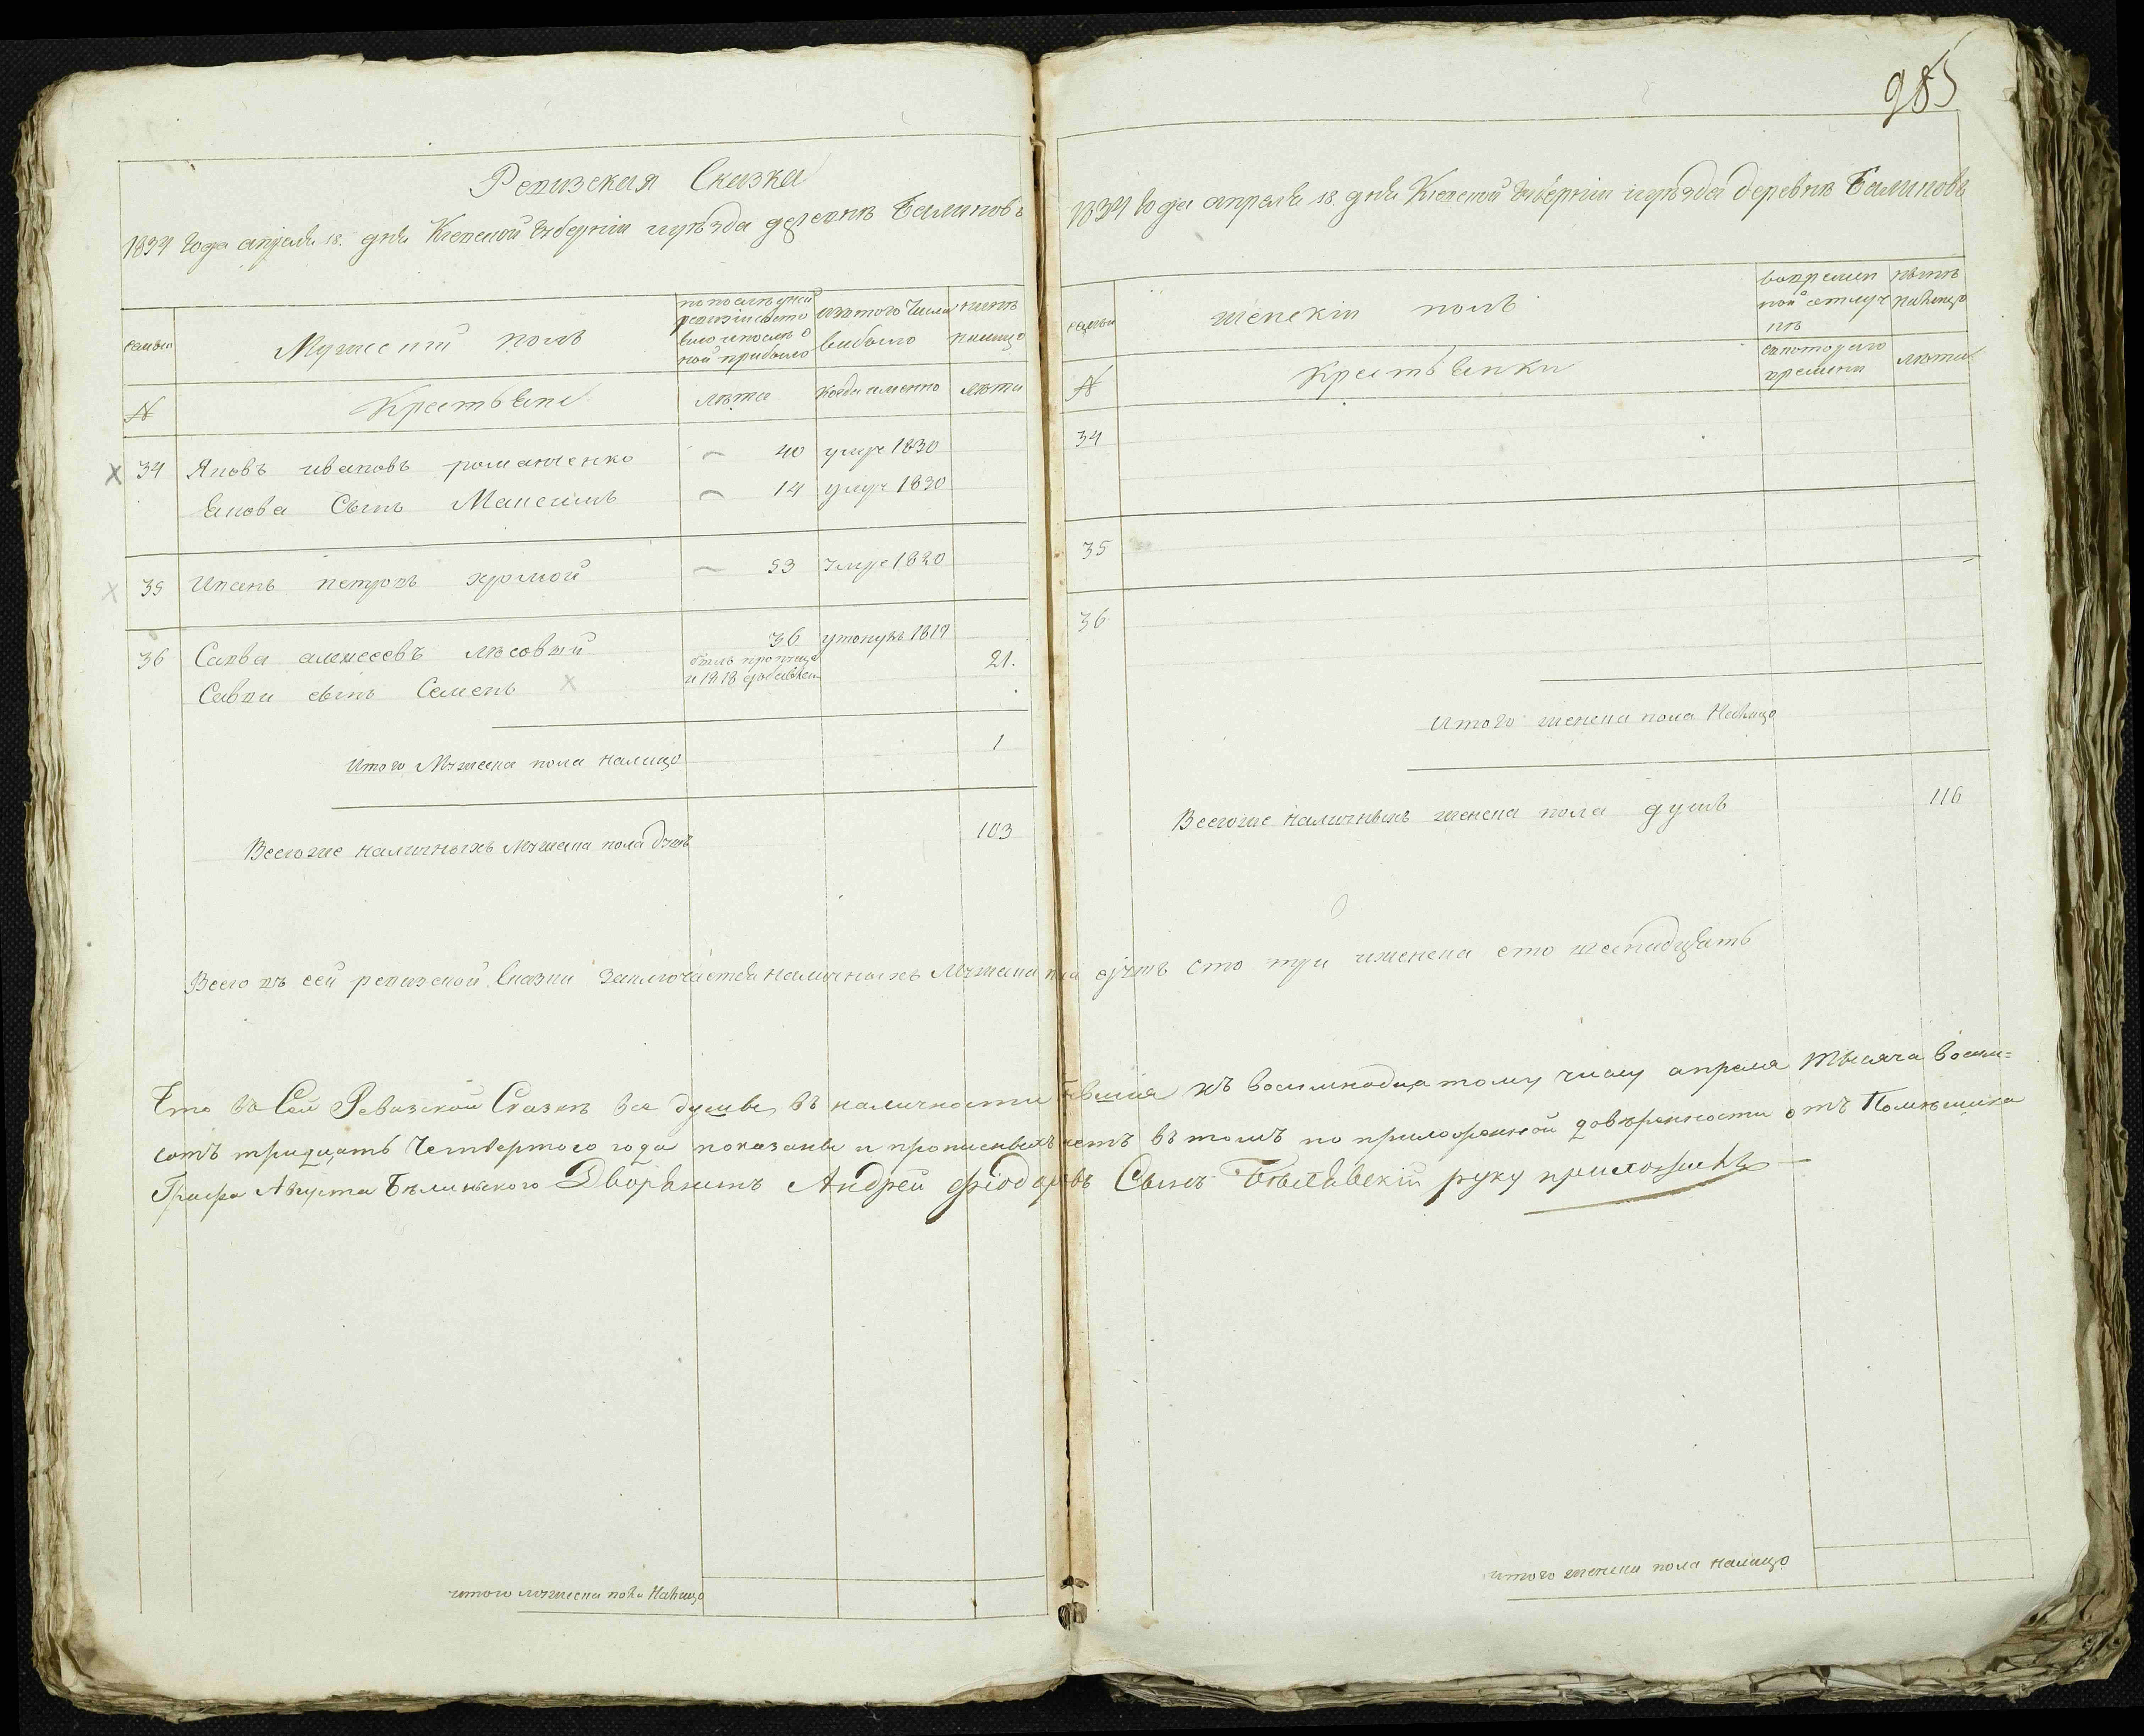 985
Ревизская Сказка
1834 года апреля 18. дня Киевской Губерніи и уѣзда деревнѣ Баликовѣ
семьи
Мужескій полъ
по послѣдней ревизіи состояло и после оной прибыло
изъ того числа выбыло
нынѣ налицо
№
Крестьяне
лѣта
когда именно
лѣта
34 Яковъ ивановъ романченко 40 умре 1830
Якова Сынъ Максимъ 14 умре 1830
35 Иванъ петровъ хромой 53 умре 1820
36 Савва алексеевъ лѣсовый 36 утонулъ 1817
Саввы сынъ Семенъ 21.
Итого Мужеска пола налицо 1
Всегоже наличныхъ Мужеска пола душъ 103
итого мужеска пола налицо
1834 года апреля 18. дня Киевской Губерніи и уѣзда деревнѣ Баликовѣ
семьи
женскій полъ
во временной отлучкѣ
нынѣ налицо
№
Крестьянки
съ котораго времени
лѣта
34
35
36
Итого женска пола налицо
Всегоже наличныхъ женска пола душъ 116
Всего въ сей ревизской Сказки заключается наличныхъ Мужеска пола душъ сто три и женска сто шеснадцать
Что въ Сей Ревизской Сказкѣ все душы въ наличности бывшія къ восимнадцатому числу апреля тысяча восим=
сотъ тридцать Четвертого года показаны и прописныхъ нетъ въ томъ по приложенной довѣренности отъ Помѣщика
Графа Августа Бѣлинского Дворянинъ Андрей Фіодоровъ Сынъ руку приложилъ
итого женска пола налицо